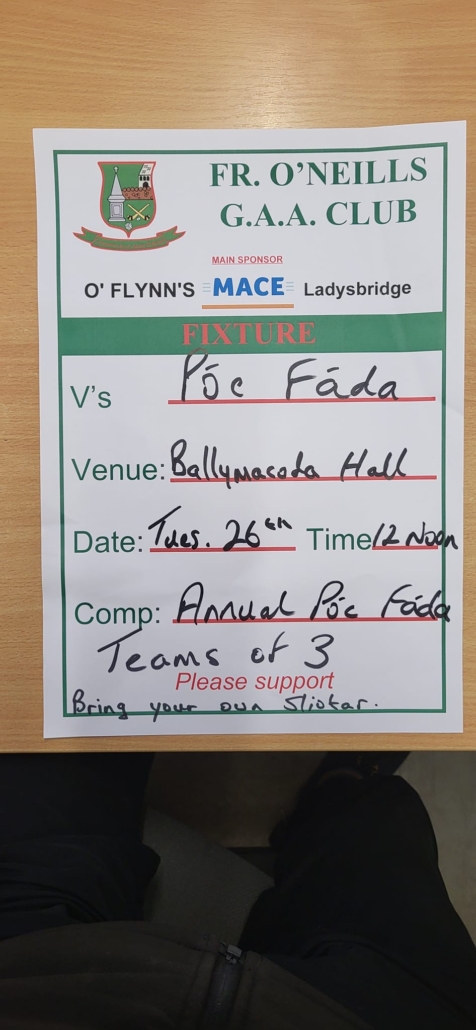 FR. O'NEILLS
G.A.A. CLUB
MAIN SPONSOR
O' FLYNN'S MACE Ladysbridge
FIXTURE
V's Póc Fáda
Venue: Ballymacoda Hall
Date: Tues. 26th Time 12 Noon
Comp: Annual Póc Fáda
Teams of 3
Please support
Bring your own Sliotar.